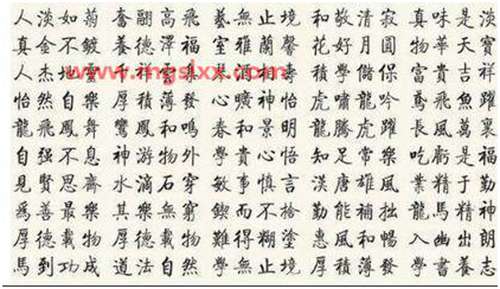 人淡如菊 奮翮高飛 藝無止境 和敬清寂 真味是淡
真金不鍍 養德澤福 室雅蘭馨 花好月圓 物華天寶
人杰地靈 神 積學儲保 富貴吉祥
www.mgslxx.com
怡然自樂 厚積薄發 心曠神怡 虎嘯龍吟 鳶飛魚躍
龍飛鳳舞 鸞鳳和鳴 春和景明 龍騰虎躍 長風萬裏
自强不息 神游物外 學貴心悟 知足常樂 吃虧是福
見賢思齊 水滴石穿 敏事慎言 漢唐雄風 業精于勤
爲善最樂 其樂無窮 鍥而不捨 勤能補拙 龍馬精神
厚德載物 厚德載物 難得糊塗 惠風和暢 入幽出朗
馬到功成 道法自然 學無止境 厚積薄發 學書養志